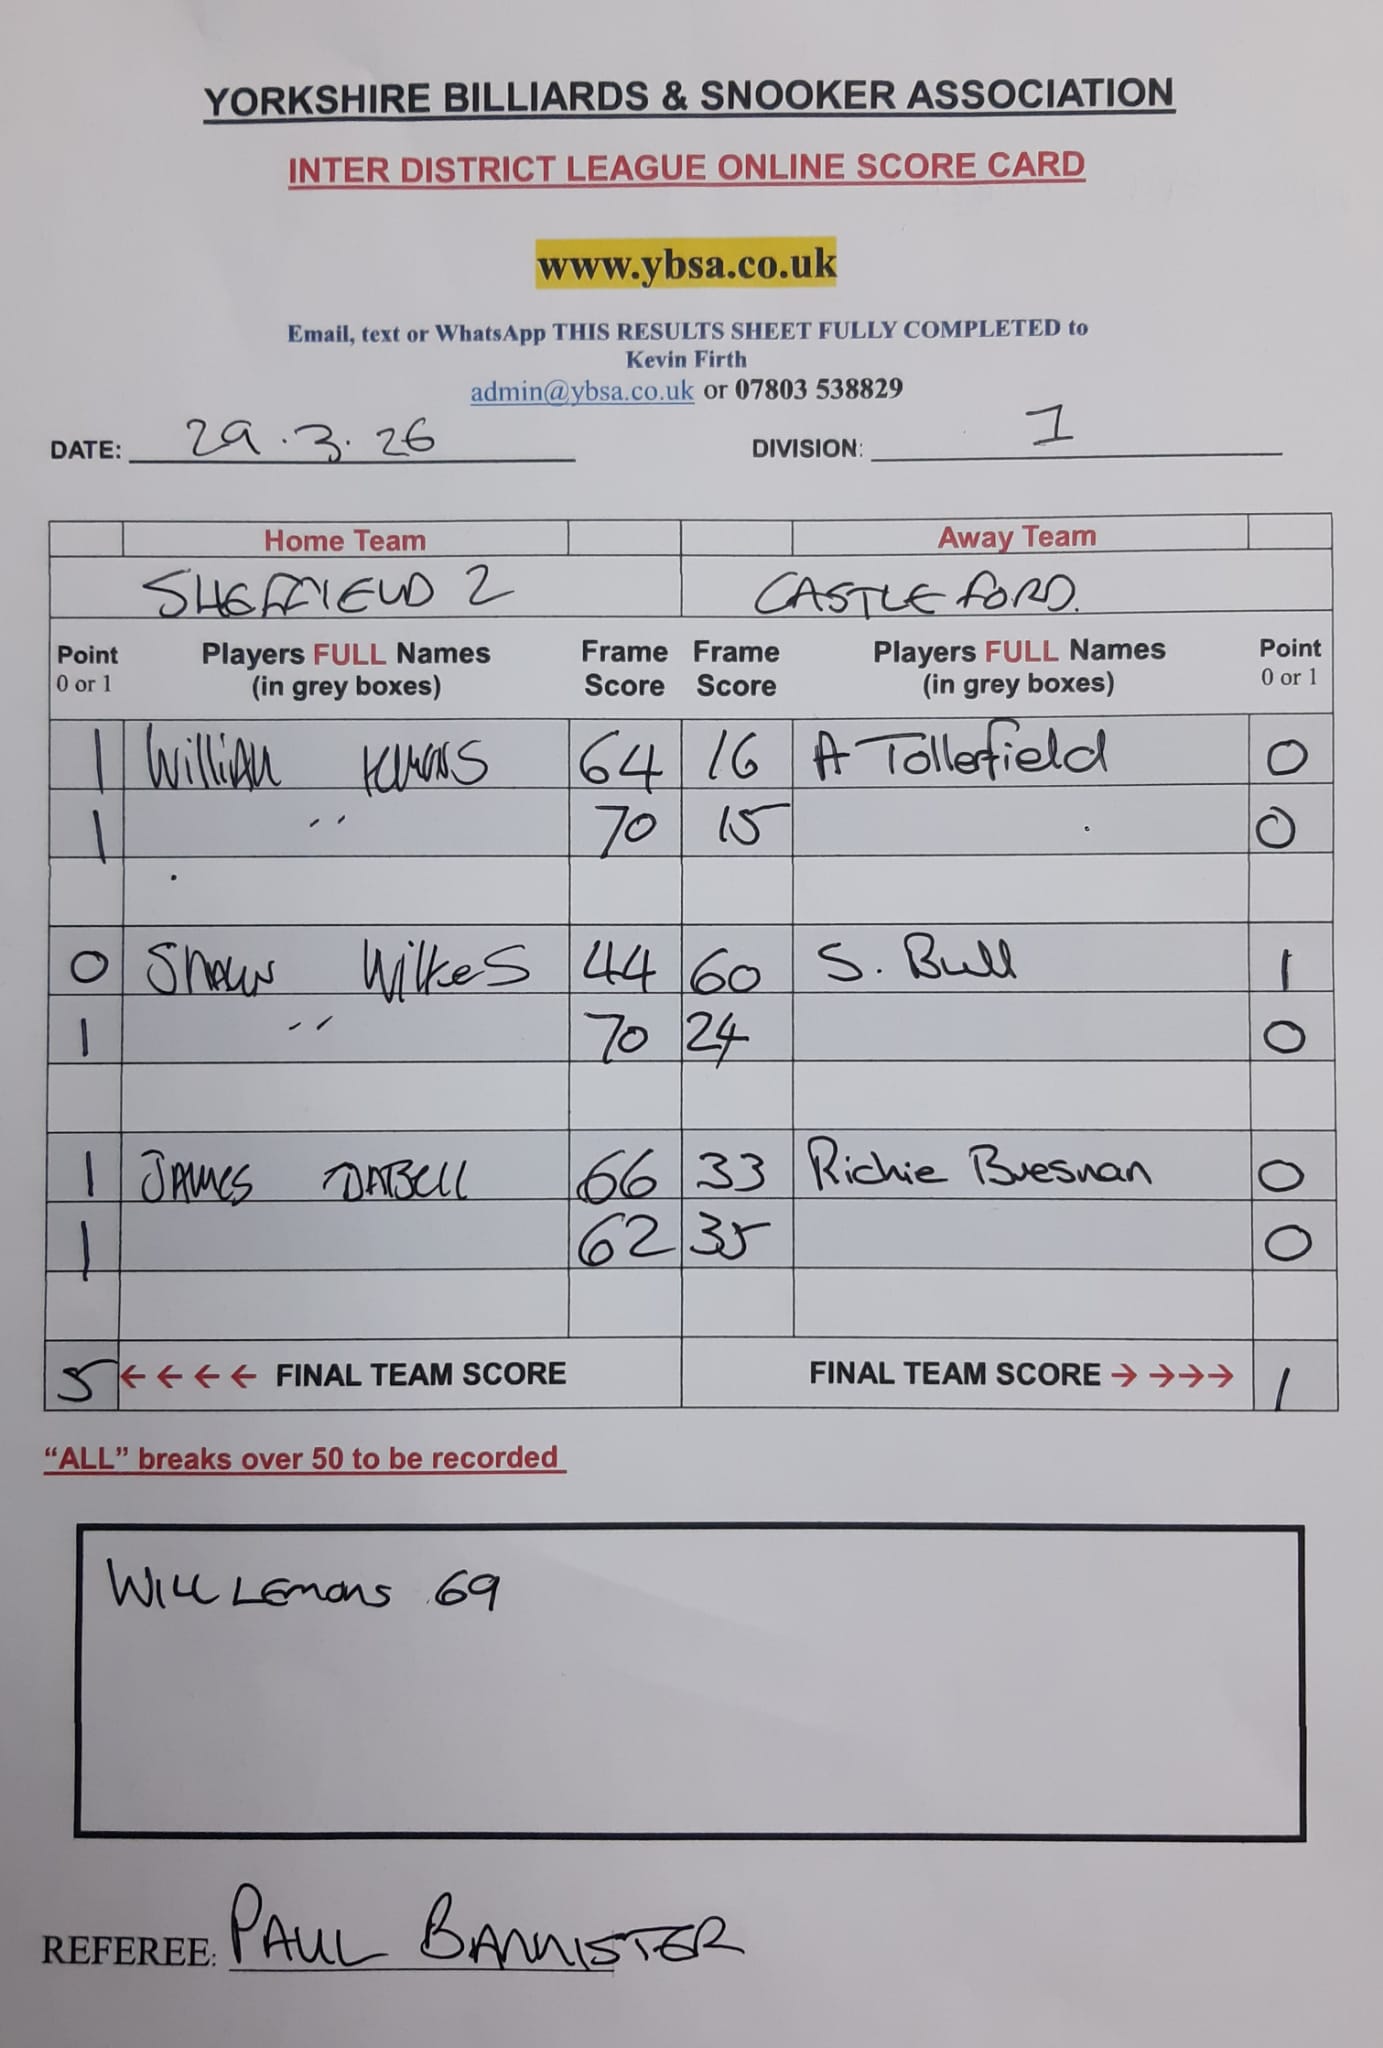 YORKSHIRE BILLIARDS & SNOOKER ASSOCIATION
INTER DISTRICT LEAGUE ONLINE SCORE CARD
www.ybsa.co.uk
Email, text or WhatsApp THIS RESULTS SHEET FULLY COMPLETED to
Kevin Firth
admin@ybsa.co.uk or 07803 538829
DATE: 29.3.26 DIVISION: 1
Home Team Away Team
SHEFFIELD 2 CASTLEFORD.
Point 0 or 1 Players FULL Names (in grey boxes) Frame Score Frame Score Players FULL Names (in grey boxes) Point 0 or 1
1 William 64 16 A Tollerfield 0
1 " 70 15 0
0 Shaun Wilkes 44 60 S. Bull 1
1 " 70 24 0
1 JAMES DABELL 66 33 Richie Bresnan 0
1 62 35 0
5 ←←←← FINAL TEAM SCORE FINAL TEAM SCORE → →→→ 1
“ALL” breaks over 50 to be recorded
WILL LEmons 69
REFEREE: PAUL BANNISTER